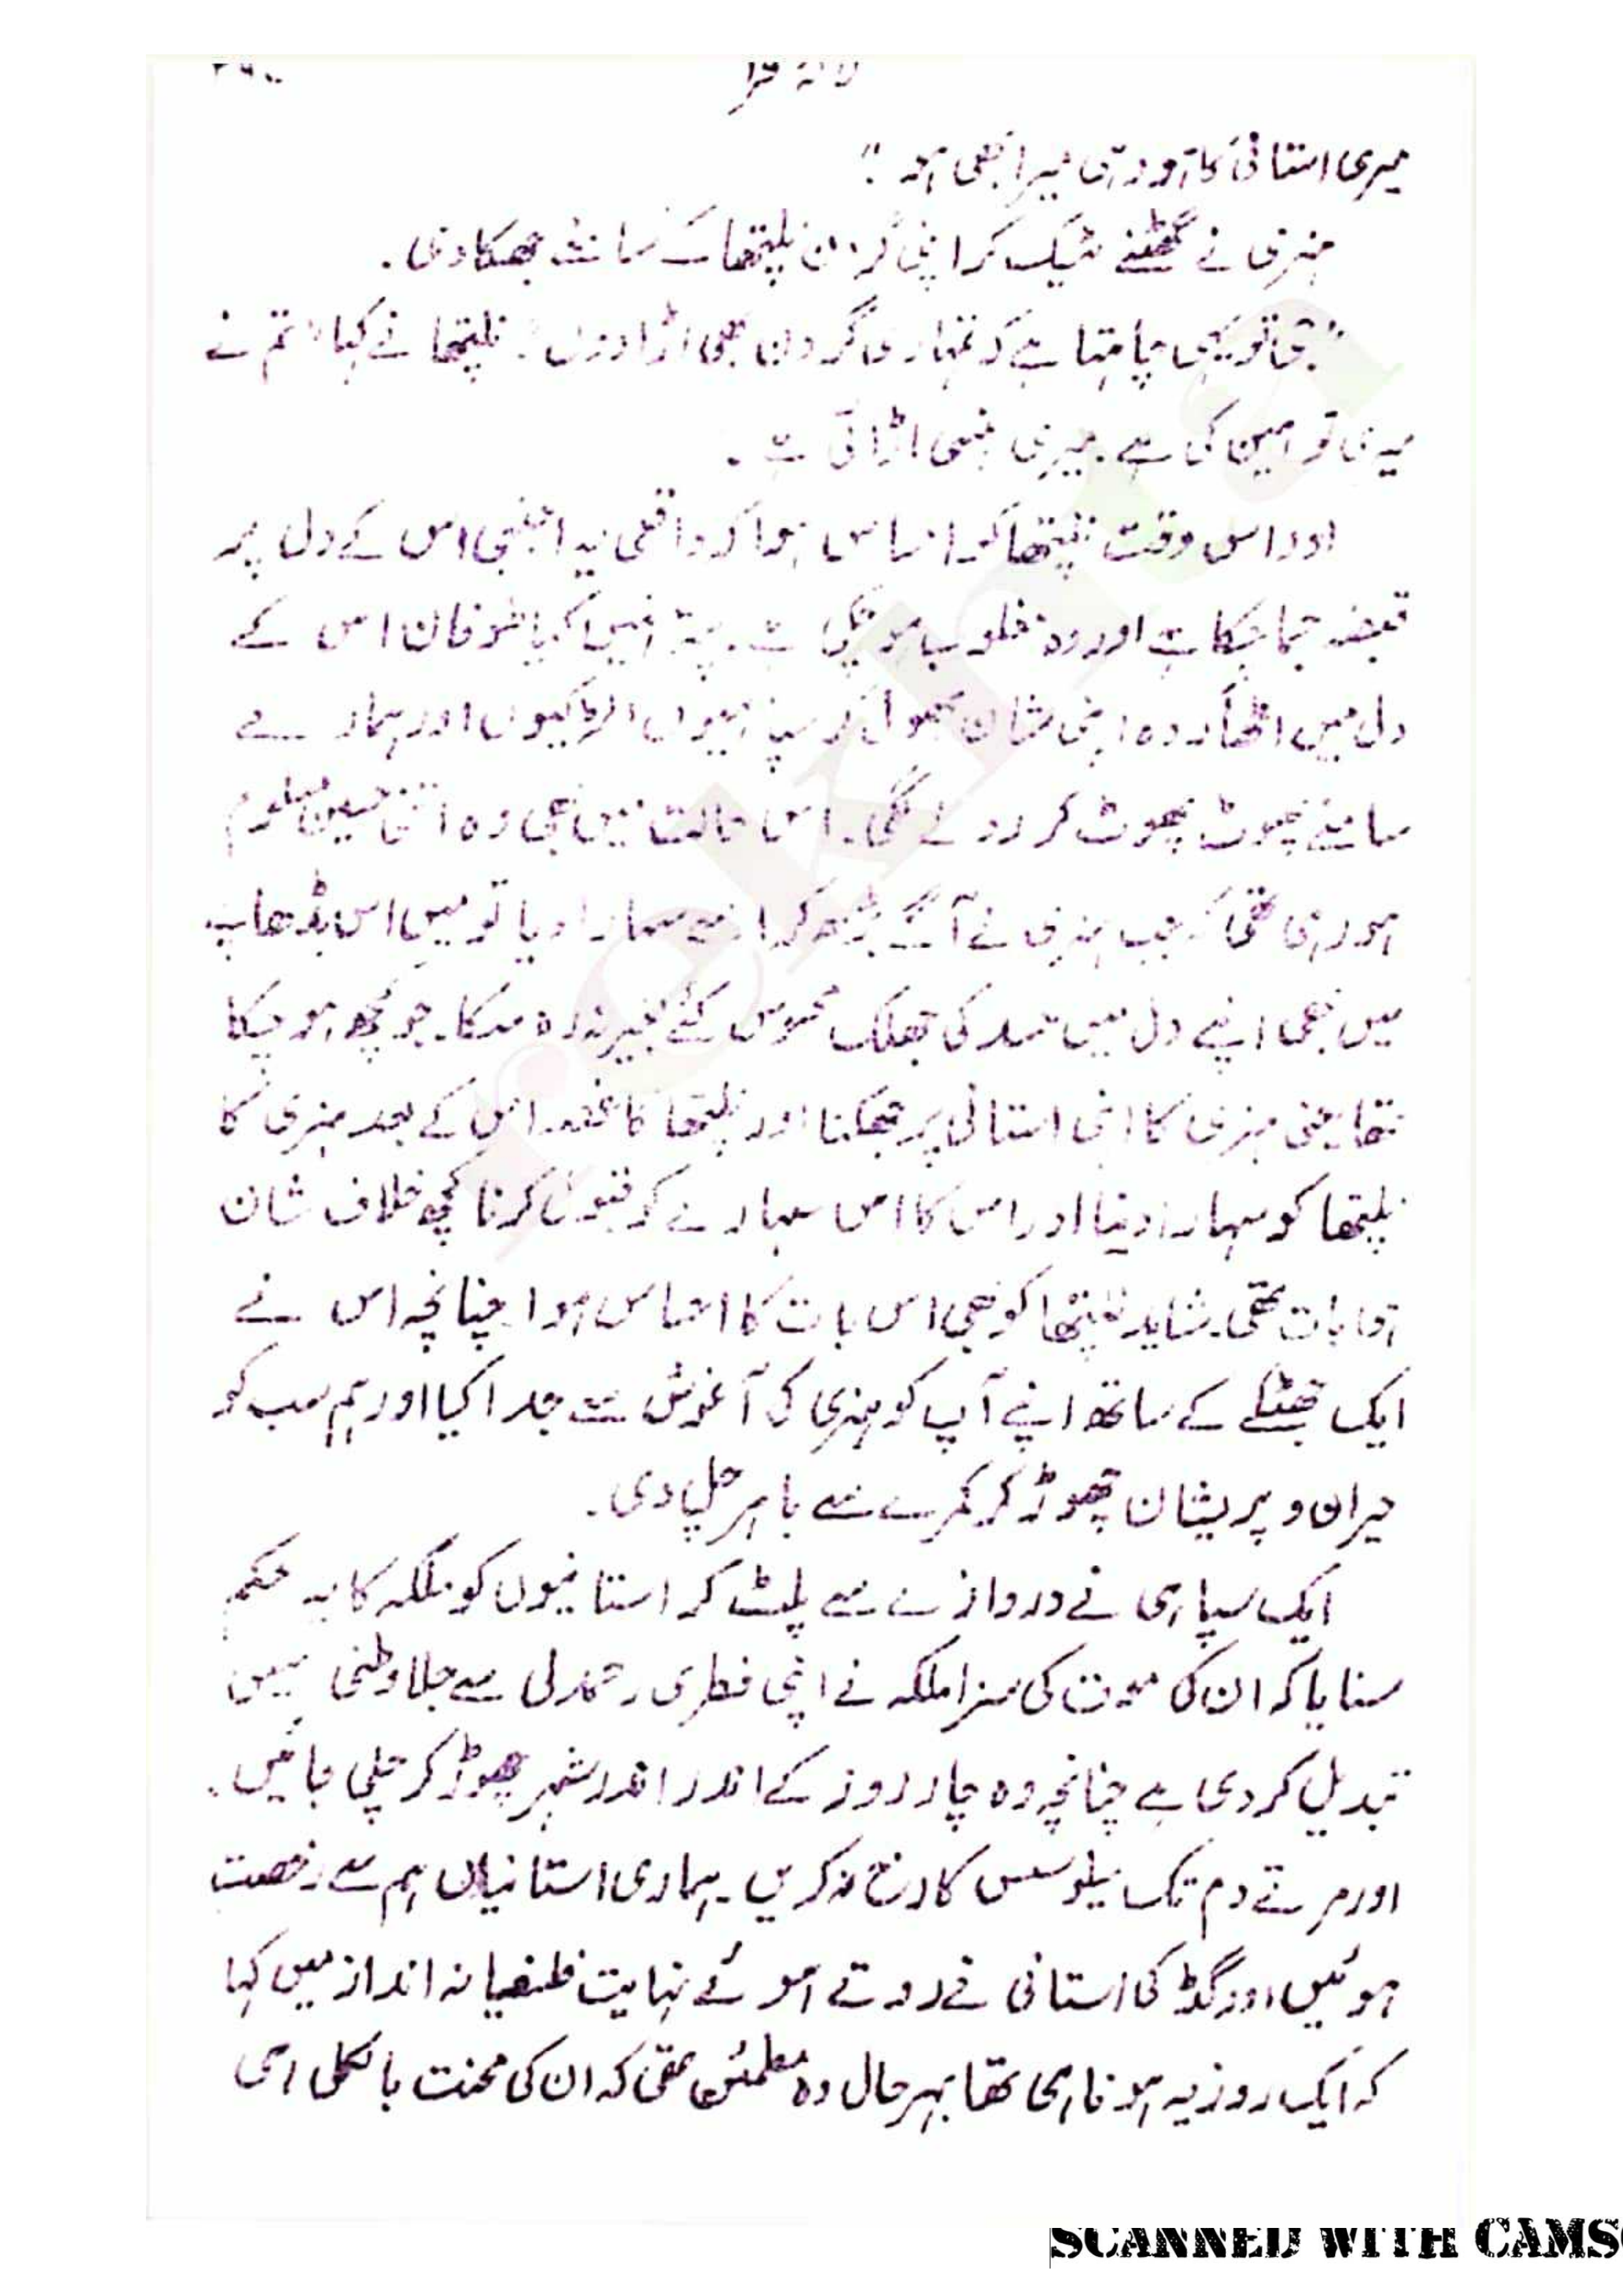 لالۂ صحرا
میری استانی کا ہو وہی میرا بھی ہو"
ہنری نے گھٹنے ٹیک کر اپنی گردن نلیپتھا کے سامنے جھکا دی.
"جی تو یہی چاہتا ہے کہ تمہاری گردن بھی اڑا دوں" نلیپتھا نے کہا "تم نے
میری توہین کی ہے. میری ہنسی اڑائی ہے.
اور اس وقت نلیپتھا کو احساس ہوا کہ واقعی یہ اجنبی اس کے دل پر
قبضہ جما چکا ہے اور وہ مغلوب ہو چکی ہے. پتہ نہیں کیا طوفان اس کے
دل میں اٹھا کہ وہ اپنی شان بھول کر سپاہیوں لڑکیوں اور ہمارے
سامنے پھوٹ پھوٹ کر رونے لگی. اس حالت میں بھی وہ اتنی حسین معلوم
ہو رہی تھی کہ جب ہنری نے آگے بڑھ کر اسے سہارا دیا تو میں اس بڑھاپے
میں بھی اپنے دل میں حسد کی جھلک محسوس کئے بغیر نہ رہ سکا. جو کچھ ہو چکا
تھا یعنی ہنری کا اپنی استانی پر جھکنا اور نلیپتھا کا غصہ اس کے بعد ہنری کا
نلیپتھا کو سہارا دینا اور اس کا اس سہارے کو قبول کرنا کچھ خلاف شان
بات تھی. شاید نلیپتھا کو بھی اس بات کا احساس ہوا چنانچہ اس نے
ایک جھٹکے کے ساتھ اپنے آپ کو ہنری کی آغوش سے جدا کیا اور ہم سب کو
حیران و پریشان چھوڑ کر کمرے سے باہر چل دی.
ایک سپاہی نے دروازے سے پلٹ کر استانیوں کو ملکہ کا یہ حکم
سنایا کہ ان کی موت کی سزا ملکہ نے اپنی فطری رحمدلی سے جلاوطنی میں
تبدیل کر دی ہے چنانچہ وہ چار روز کے اندر اندر شہر چھوڑ کر چلی جائیں.
اور مرتے دم تک میلوسس کا رخ نہ کریں. ہماری استانیاں ہم سے رخصت
ہوئیں اور گڈ کی استانی نے روتے ہوئے نہایت فلسفیانہ انداز میں کہا
کہ ایک روز یہ ہونا ہی تھا بہرحال وہ مطمئن تھی کہ ان کی محنت بالکل ہی
SCANNED WITH CAMS